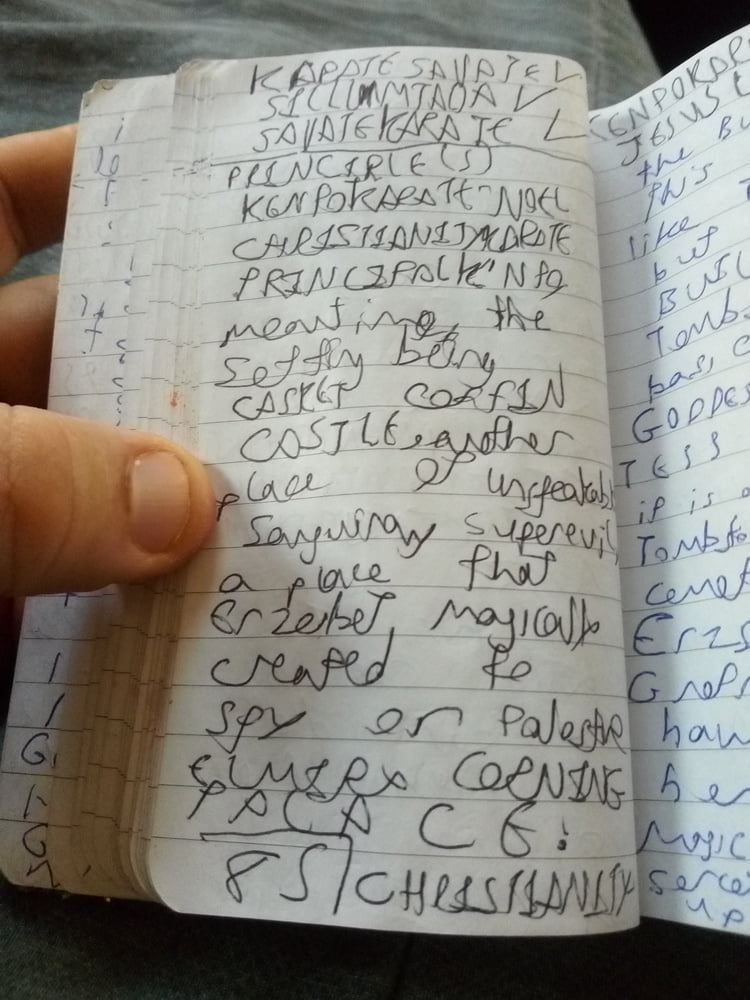 KARATE SAVATE V
SILLUMTAOA V
SAVATE KARATE L
PRINCIPLE(S)
KENPOKARATE NOEL
CHRISTIANITY KARATE
PRINCIPAL K'NFO
meaning, the
setting being
CASKET COFFIN
CASTLE, another
place of unspeakabl
Sanguinary superevil
a place that
Erzebet, magically
created to
spy on Palestine
ELMIRA CORNING
PACA C E:
85 CHRISTIANITY
KENPOKAR
JESUS
the BU
this
like T
but
BUIL
Tomb
basic
GODDES
TESS
it is
Tombsto
cemet
Erzs
Grot
hau
her
Magic
up